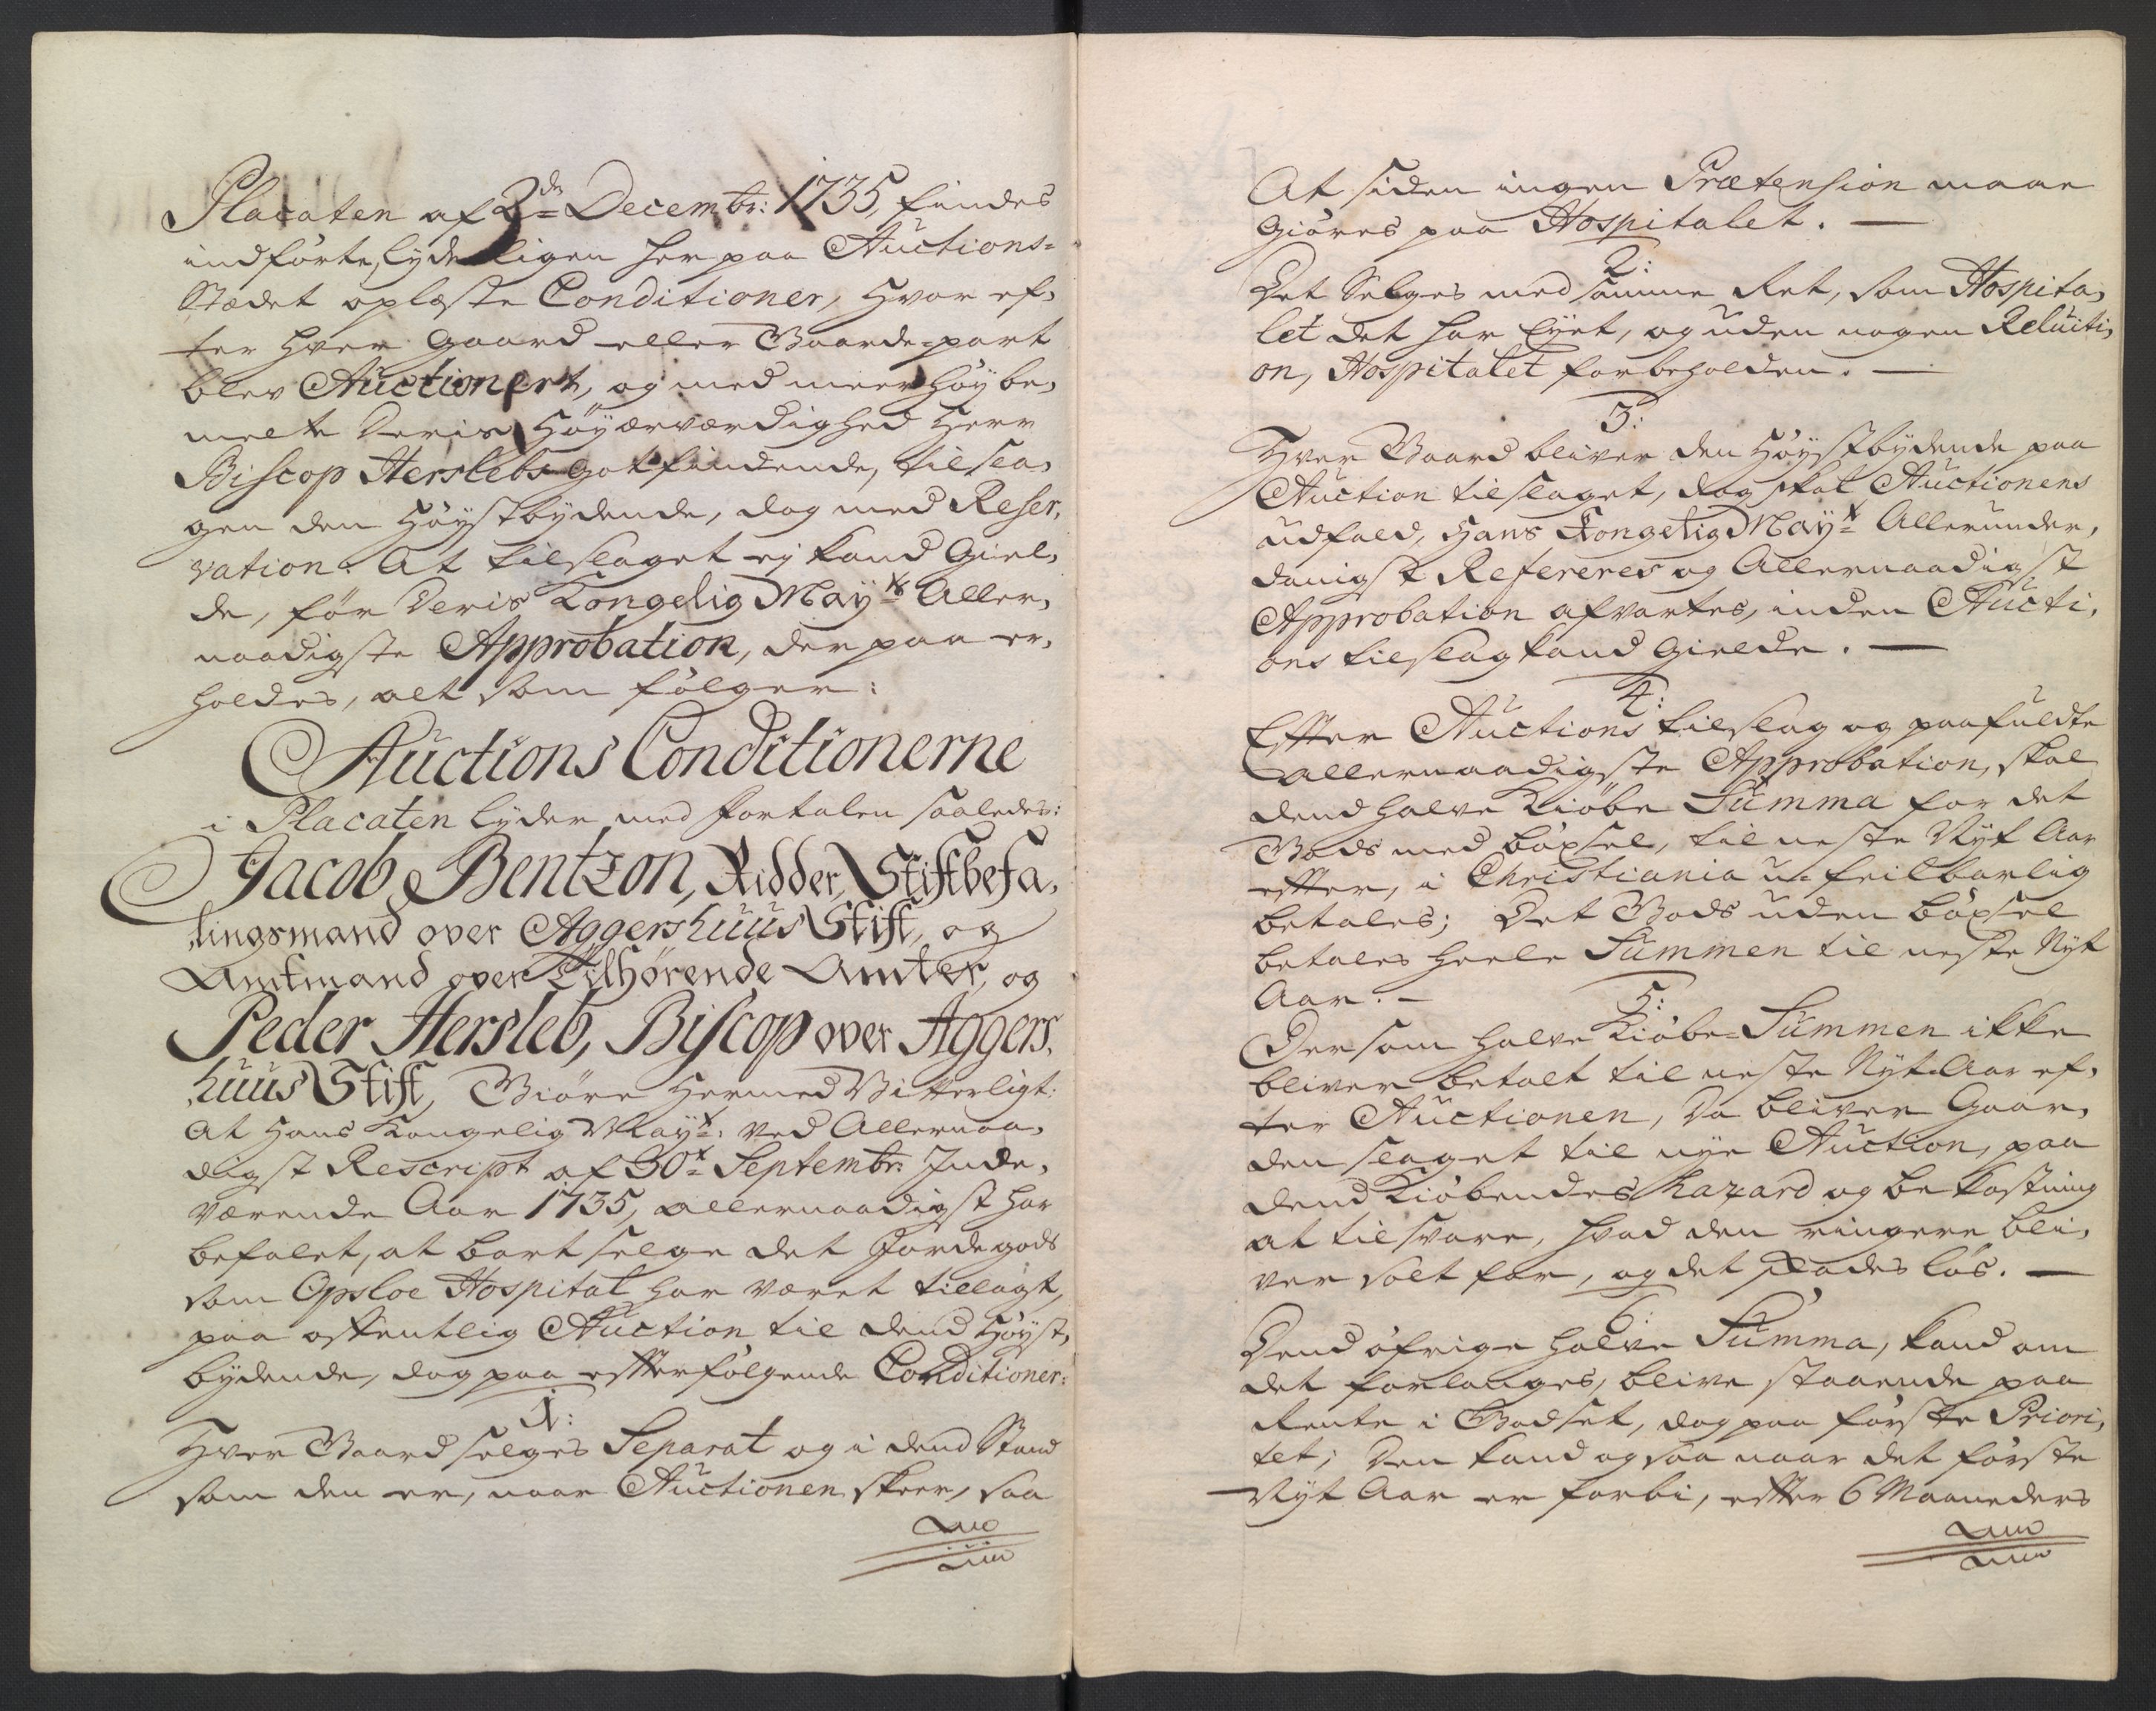 Placaten af 2de Decembr: 1735, findes
indförte, lydeligen her paa Auctions-
Stædet oplæste Conditioner, Hvor ef-
ter hver gaard eller Gaarde-part
blev Auctionert, og med meer höybe-
melte Deris Höyærværdighed Herr
Biscop Herslebs Got findende, tilsla-
gen den Höystbydende, dog med Reser-
vation. At tilslaget ej kand Giel-
de, för Deris Kongelig Mayts Aller-
naadigste Approbation, der paa er-
holdes, alt som fölger:
Auctions Conditionerne
i Placaten lyder med fortalen saaledes:
Jacob Bentzon, Ridder, Stiftbefa-
lingsmand over Aggershuus Stift, og
Amtmand over Tilhörende Amter, og
Peder Hersleb, Biscop over Aggers-
huus Stift, Giöre Hermed Vitterligt:
At Hans Kongelig Mayt: ved Allernaa-
digst Rescript af 30t Septembr: Inde-
værende Aar 1735, allernaadigst har
befalet, at bort selge det Jordegods
som Opsloe Hospital har været tillagt,
paa offentlig Auction til dend Höyst-
bydende, dog paa efterfölgende Conditioner:
1:
Hver Gaard selges Separat og i dend Stand
som den er, naar Auctionen skeer, saa
At siden ingen Prætension maae
giöres paa Hospitalet. —
2:
Det Selges med samme Ret, som Hospita-
let det har Eyet, og uden nogen Reluiti-
on, Hospitalet forbeholden. —
3:
Hver Gaard bliver den Höystbydende paa
Auction tilslaget, dog skal Auctionens
udfald, Hans Kongelig Mayt Allerunder-
danigst Refereres og Allernaadigst
Approbation afvartes, inden Aucti-
ons tilslag kand Gielde. —
4:
Efter Auctions tilslag og paafuldte
allernaadigste Approbation, skal
dend halve Kiöbe Summa for det
Gods med böxsel, til neste Nyt Aar
efter, i Christiania u-feilbarlig
betales; Det Gods uden böxsel
betales heele Summen til neste Nyt
Aar. —
5:
Dersom halve Kiöbe-Summen ikke
bliver betalt til neste Nyt-Aar ef-
ter Auctionen, Da bliver Gaar-
den slaget til nye Auction, paa
dend Kiöbendes hazard og bekostning
at tilsvare, hvad den ringere bli-
ver solt for, og det skadeslös. —
6:
Dend öfrige halve Summa, kand om
det forlanges, blive staaende paa
Rente i Godset, dog paa förste Priori-
tet; Den kand og saa naar det förste
Nyt Aar er forbi, efter 6 Maaneders